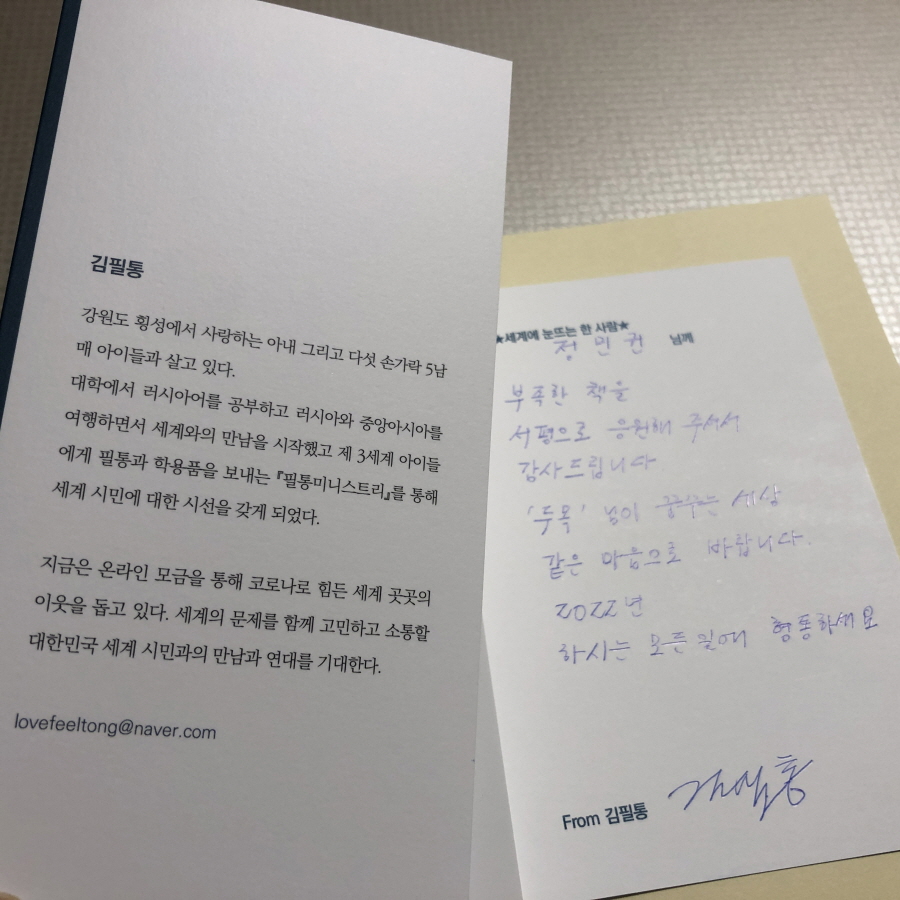 김필통
강원도 횡성에서 사랑하는 아내 그리고 다섯 손가락 5남
매 아이들과 살고 있다.
대학에서 러시아어를 공부하고 러시아와 중앙아시아를
여행하면서 세계와의 만남을 시작했고 제 3세계 아이들
에게 필통과 학용품을 보내는 『필통미니스트리』를 통해
세계 시민에 대한 시선을 갖게 되었다.
지금은 온라인 모금을 통해 코로나로 힘든 세계 곳곳의
이웃을 돕고 있다. 세계의 문제를 함께 고민하고 소통할
대한민국 세계 시민과의 만남과 연대를 기대한다.
lovefeeltong@naver.com
★세계에 눈뜨는 한 사람★
정민권 님께
부족한 책을
서평으로 응원해 주셔서
감사드립니다
'두목' 님이 꿈꾸는 세상
같은 마음으로 바랍니다.
2022년
하시는 모든 일에 형통하세요
From 김필통 김필통